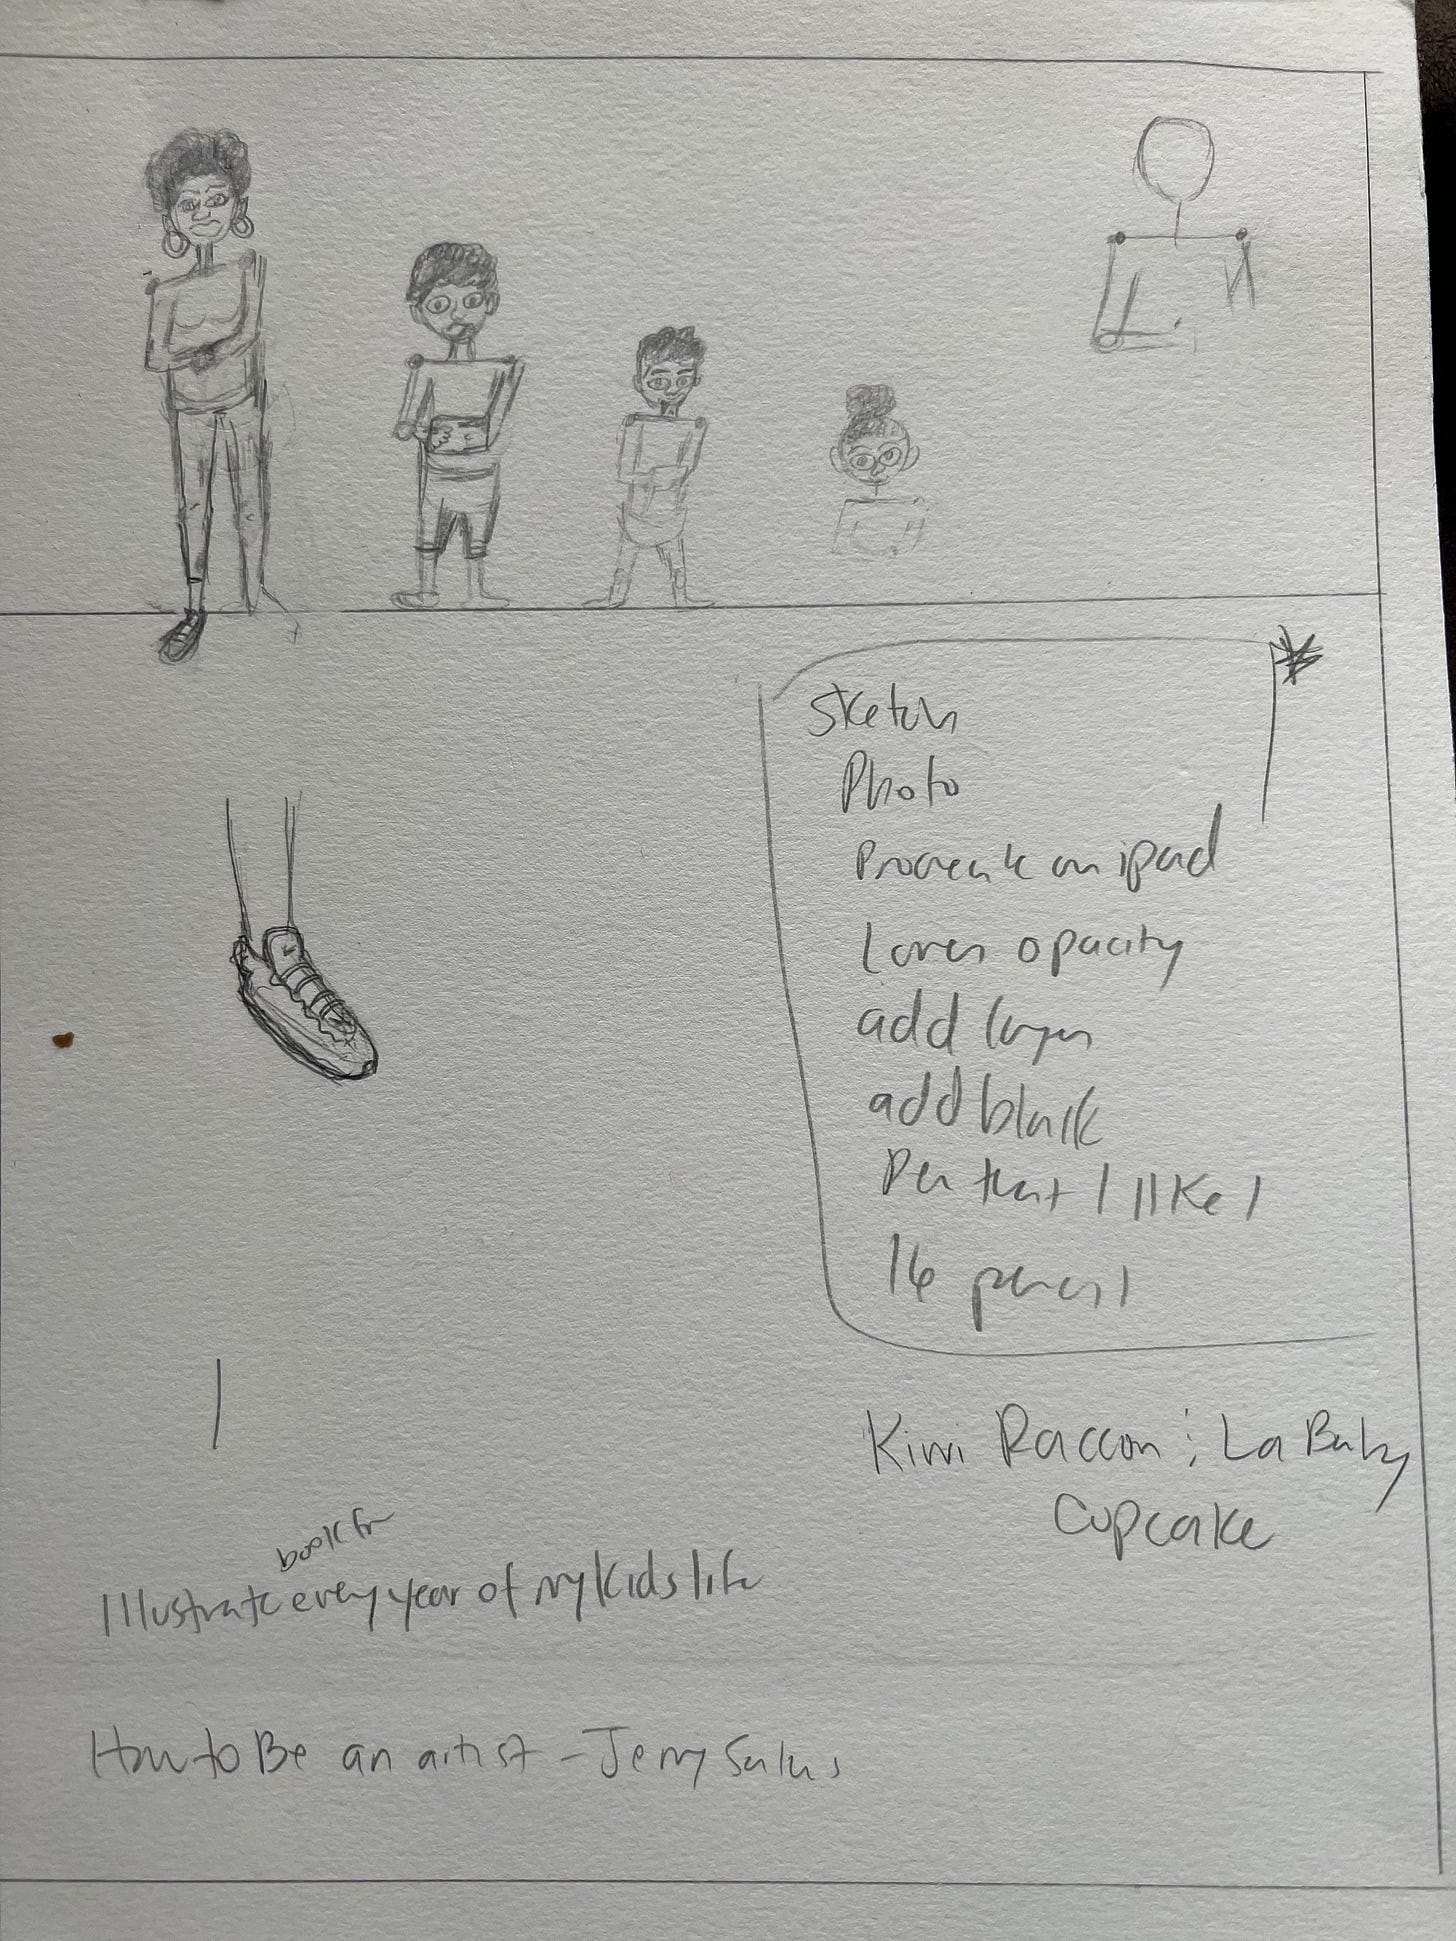 Sketch
Photo
Procreate on ipad
Lower opacity
add layer
add black
Pen that I like /
16 pencil
Kiwi Raccon : La Baby
Cupcake
book for
Illustrate every year of my kids life
How to Be an artist - Jerry